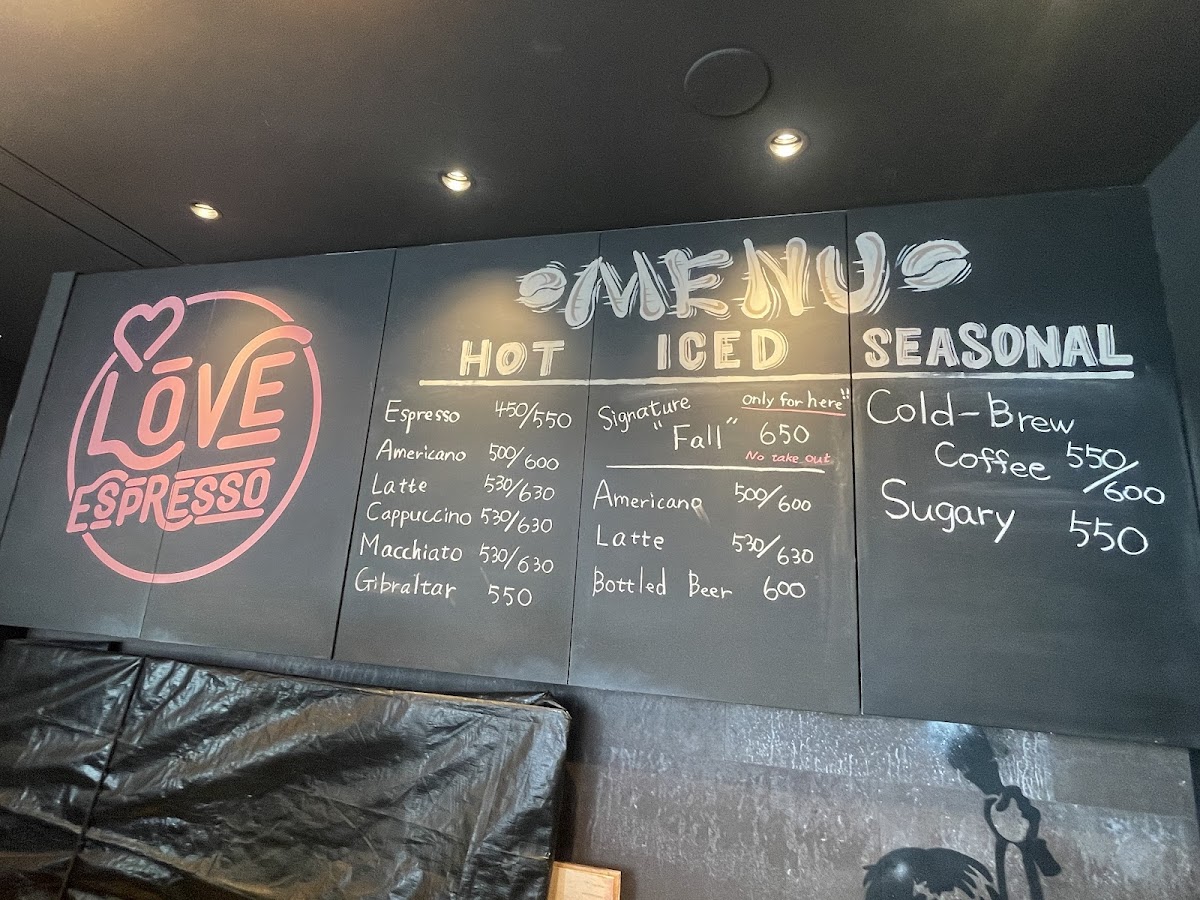 LOVE
ESPRESSO
MENU
HOT
Espresso 450/550
Americano 500/600
Latte 530/630
Cappuccino 530/630
Macchiato 530/630
Gibraltar 550
ICED
Signature only for here!!
"Fall" 650
No take out
Americano 500/600
Latte 530/630
Bottled Beer 600
SEASONAL
Cold-Brew
Coffee 550/600
Sugary 550